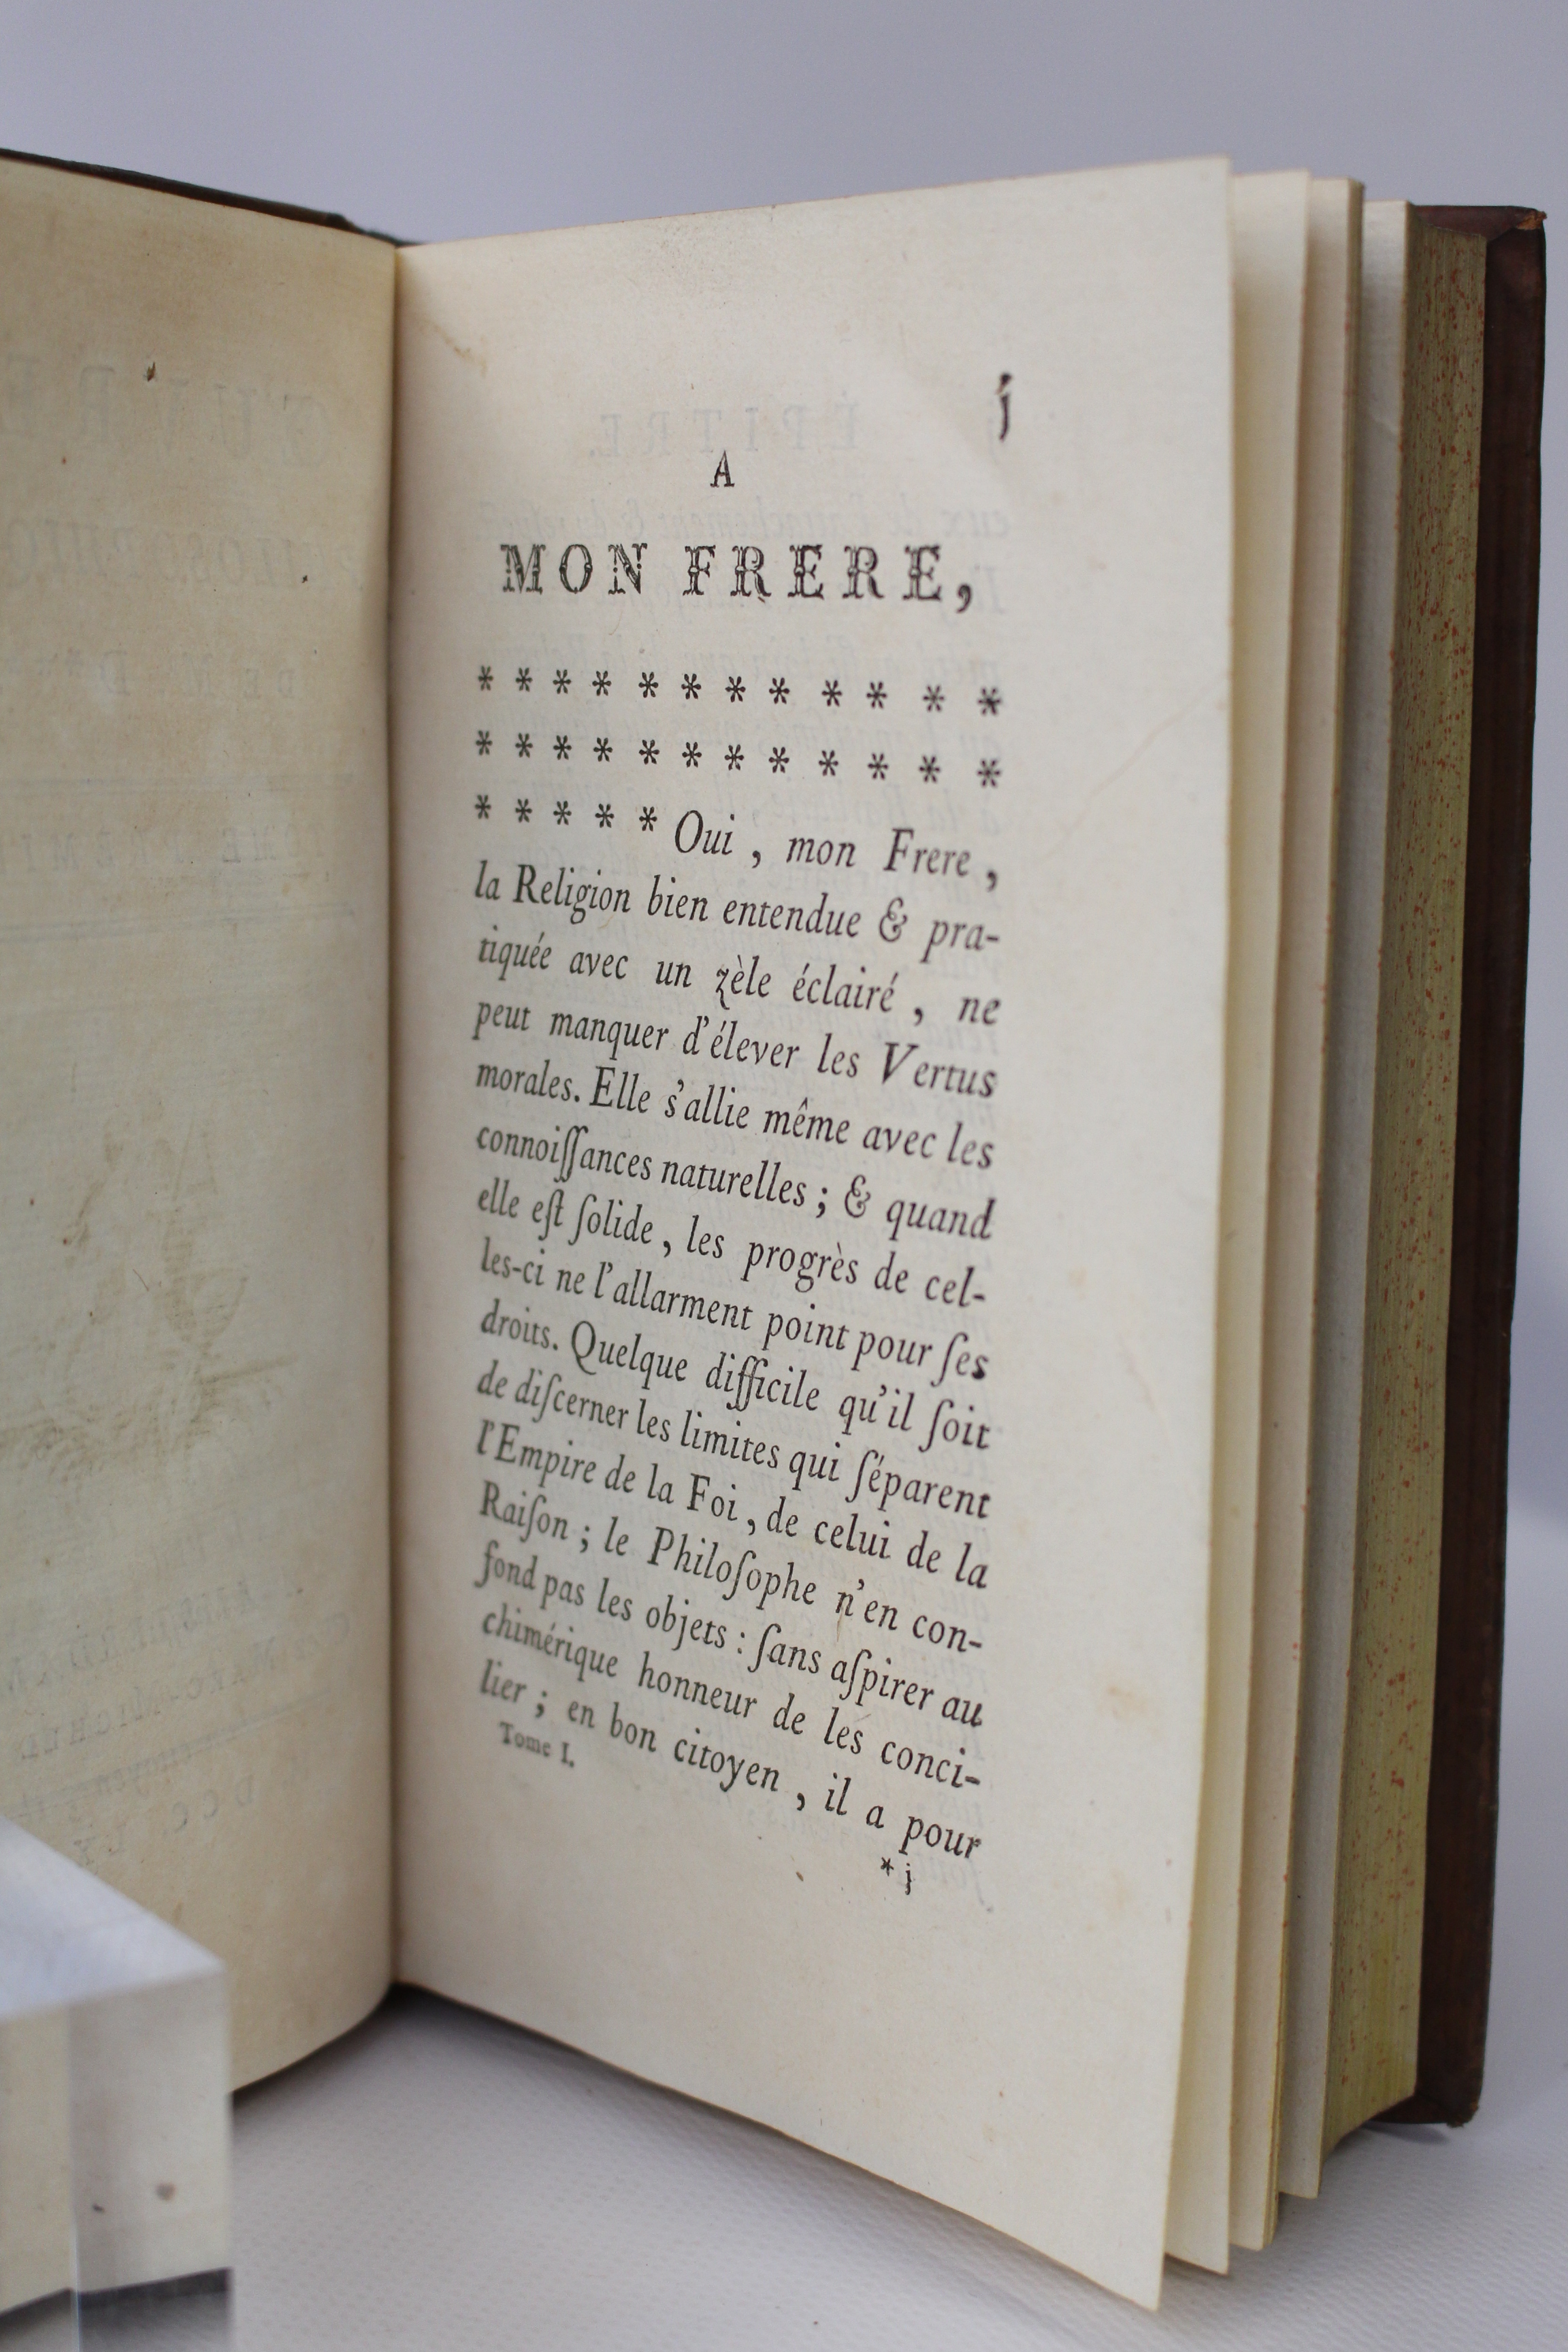 j
A
MON FRERE,
* * * * * * * * * * * *
* * * * * * * * * * * *
* * * * * Oui , mon Frere ,
la Religion bien entendue & pra-
tiquée avec un zèle éclairé , ne
peut manquer d'élever les Vertus
morales. Elle s'allie même avec les
connoiſſances naturelles ; & quand
elle eſt ſolide , les progrès de cel-
les-ci ne l'allarment point pour ſes
droits. Quelque difficile qu'il ſoit
de diſcerner les limites qui ſéparent
l'Empire de la Foi , de celui de la
Raiſon ; le Philoſophe n'en con-
fond pas les objets : ſans aſpirer au
chimérique honneur de les conci-
lier ; en bon citoyen , il a pour
Tome I.
* j